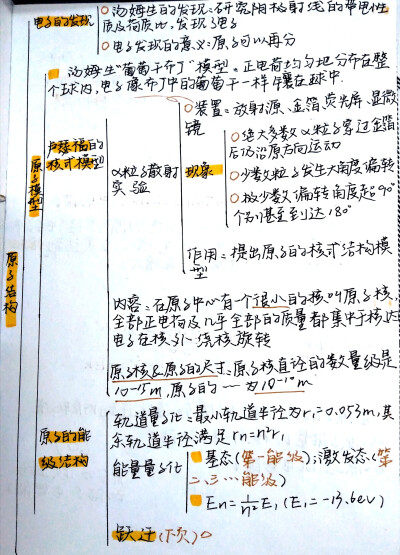 电子的发现
汤姆生的发现:研究阴极射线的带电性
质及荷质比,发现了电子
电子发现的意义:原子可以再分
汤姆生"葡萄干布丁"模型=正电荷均匀地分布在整
个球内,电子像布丁中的葡萄干一样镶在球中.
原子结构
原子模型
卢瑟福的
核式模型
α粒子散射
实验
装置=放射源、金箔、荧光屏、显微
镜
现象
绝大多数α粒子穿过金箔
后仍沿原方向运动
少数粒子发生大角度偏转
极少数偏转角度超90°
个别甚至到达180°
作用=提出原子的核式结构模
型
内容=在原子中心有一个很小的核叫原子核,
全部正电荷及几乎全部的质量都集中于核,
电子在核外绕核旋转
原子核&原子的尺寸=原子核直径的数量级是
10-15m,原子的一为10-10m
原子的能
级结构
轨道量子化=最小轨道半径为r₁=0.053m,其
余轨道半径满足rn=n²r₁
能量量子化
基态(第一能级);激发态(第
二、三…能级)
En=1/n²E₁(E₁=-13.6ev)
跃迁(下页)